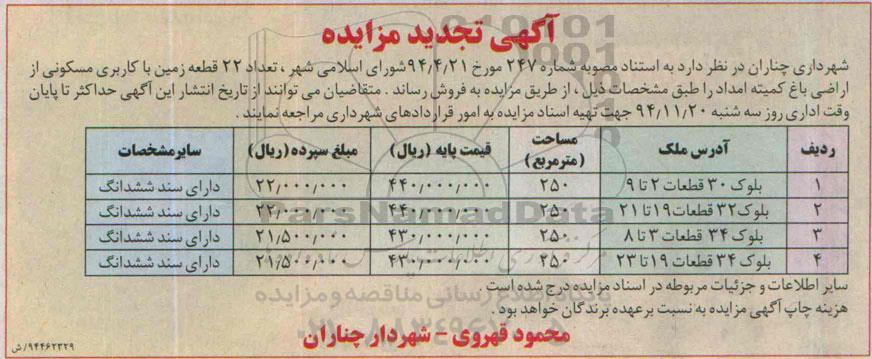 آگهی تجدید مزایده
شهرداری چناران در نظر دارد به استناد مصوبه شماره ۲۴۷ مورخ ۹۴٫۴٫۲۱شورای اسلامی شهر ، تعداد ۲۲ قطعه زمین با کاربری مسکونی از
اراضی باغ کمیته امداد را طبق مشخصات ذیل ، از طریق مزایده به فروش رساند . متقاضیان می توانند از تاریخ انتشار این آگهی حداکثر تا پایان
وقت اداری روز سه شنبه ۹۴٫۱۱٫۲۰ جهت تهیه اسناد مزایده به امور قراردادهای شهرداری مراجعه نمایند .
ردیف آدرس ملک مساحت (مترمربع) قیمت پایه (ریال) مبلغ سپرده (ریال) سایرمشخصات
۱ بلوک ۳۰ قطعات ۲ تا ۹ ۲۵۰ ۴۴۰٫۰۰۰٫۰۰۰ ۲۲٫۰۰۰٫۰۰۰ دارای سند ششدانگ
۲ بلوک ۳۲ قطعات ۱۹ تا ۲۱ ۲۵۰ ۴۴۰٫۰۰۰٫۰۰۰ ۲۲٫۰۰۰٫۰۰۰ دارای سند ششدانگ
۳ بلوک ۳۴ قطعات ۳ تا ۸ ۲۵۰ ۴۳۰٫۰۰۰٫۰۰۰ ۲۱٫۵۰۰٫۰۰۰ دارای سند ششدانگ
۴ بلوک ۳۴ قطعات ۱۹ تا ۲۳ ۲۵۰ ۴۳۰٫۰۰۰٫۰۰۰ ۲۱٫۵۰۰٫۰۰۰ دارای سند ششدانگ
ParsNamadData
سایر اطلاعات و جزئیات مربوطه در اسناد مزایده درج شده است .
هزینه چاپ آگهی مزایده به نسبت برعهده برندگان خواهد بود .
محمود قهروی – شهردار چناران
۹۴۴۶۲۳۲۹/ش